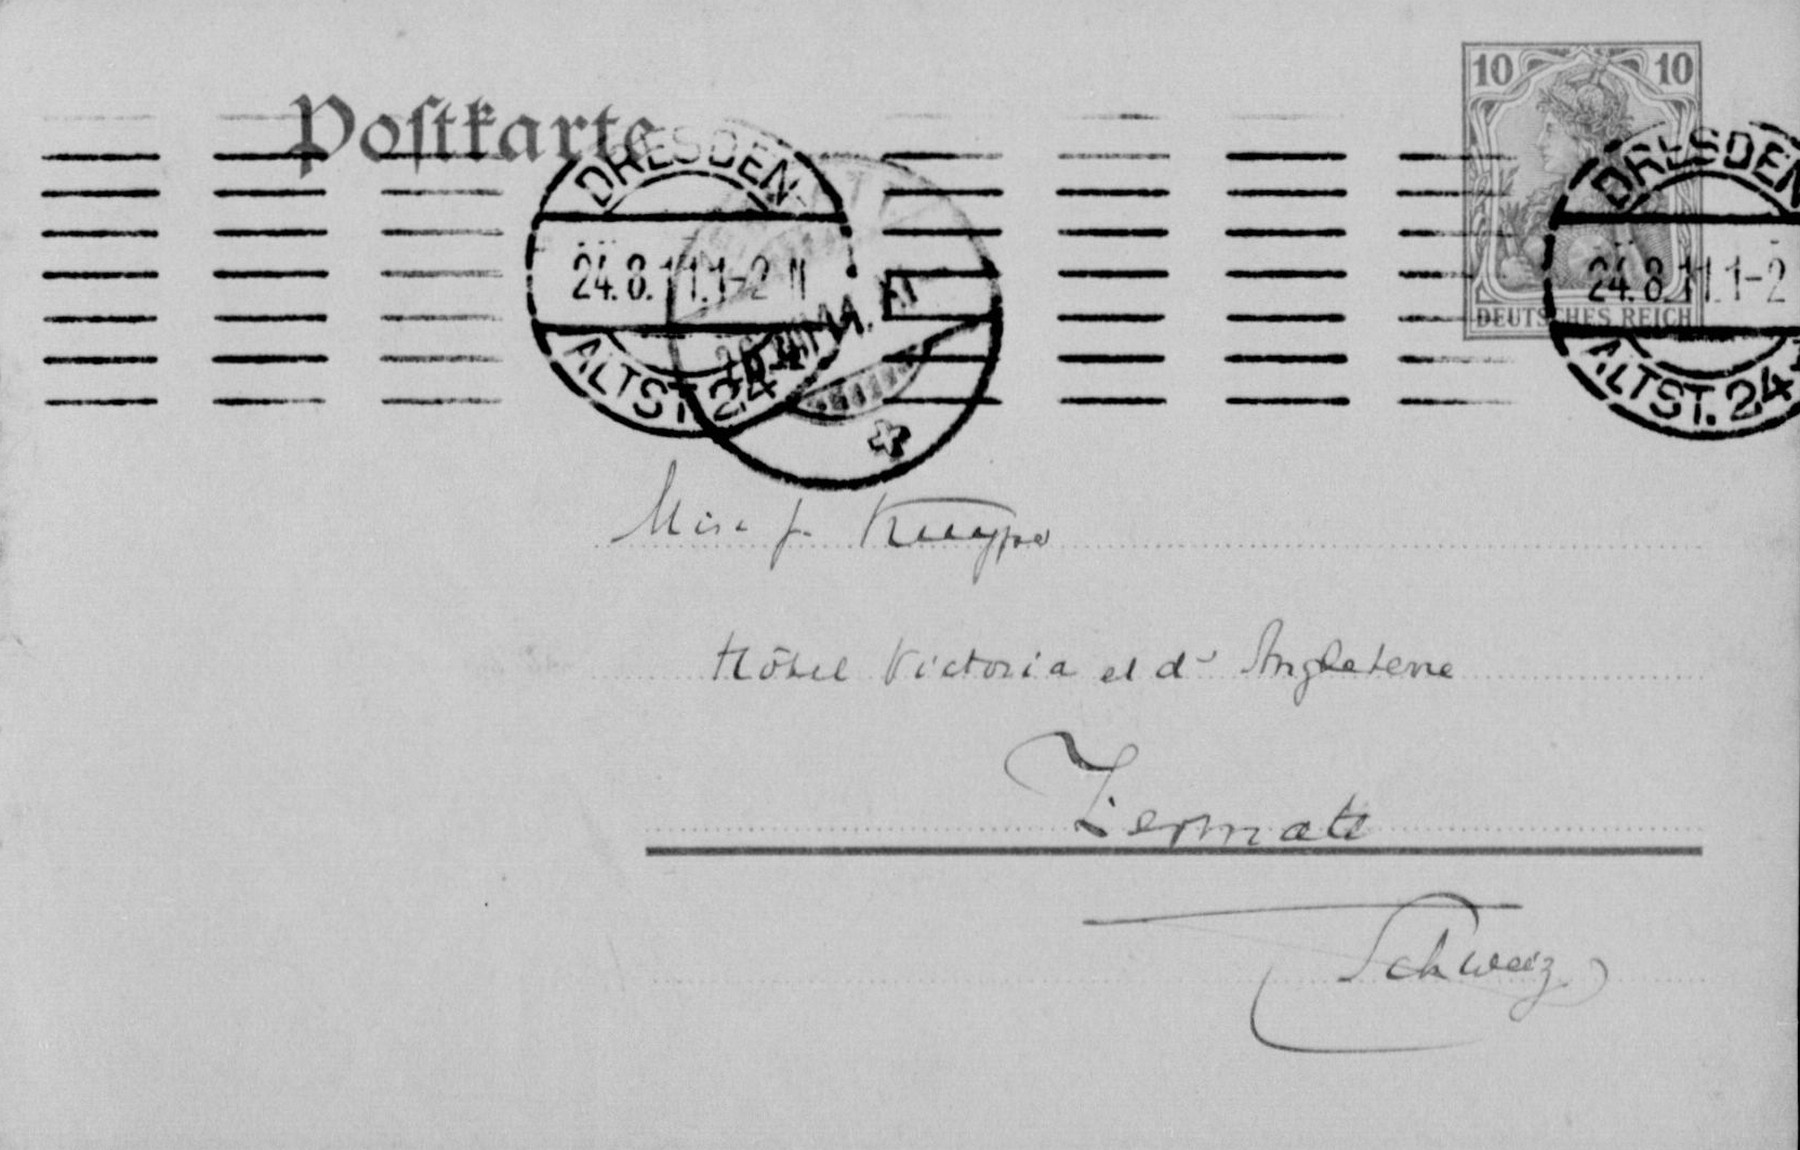 Postkarte
10 10
DEUTSCHES REICH
DRESDEN-
24.8.11.1-2
ALTST. 24
DRESDEN
24.8.11.1-2
ALTST. 24
Miss J. Kuype
Hôtel Victoria et d'Angleterre
Zermatt
Schweiz